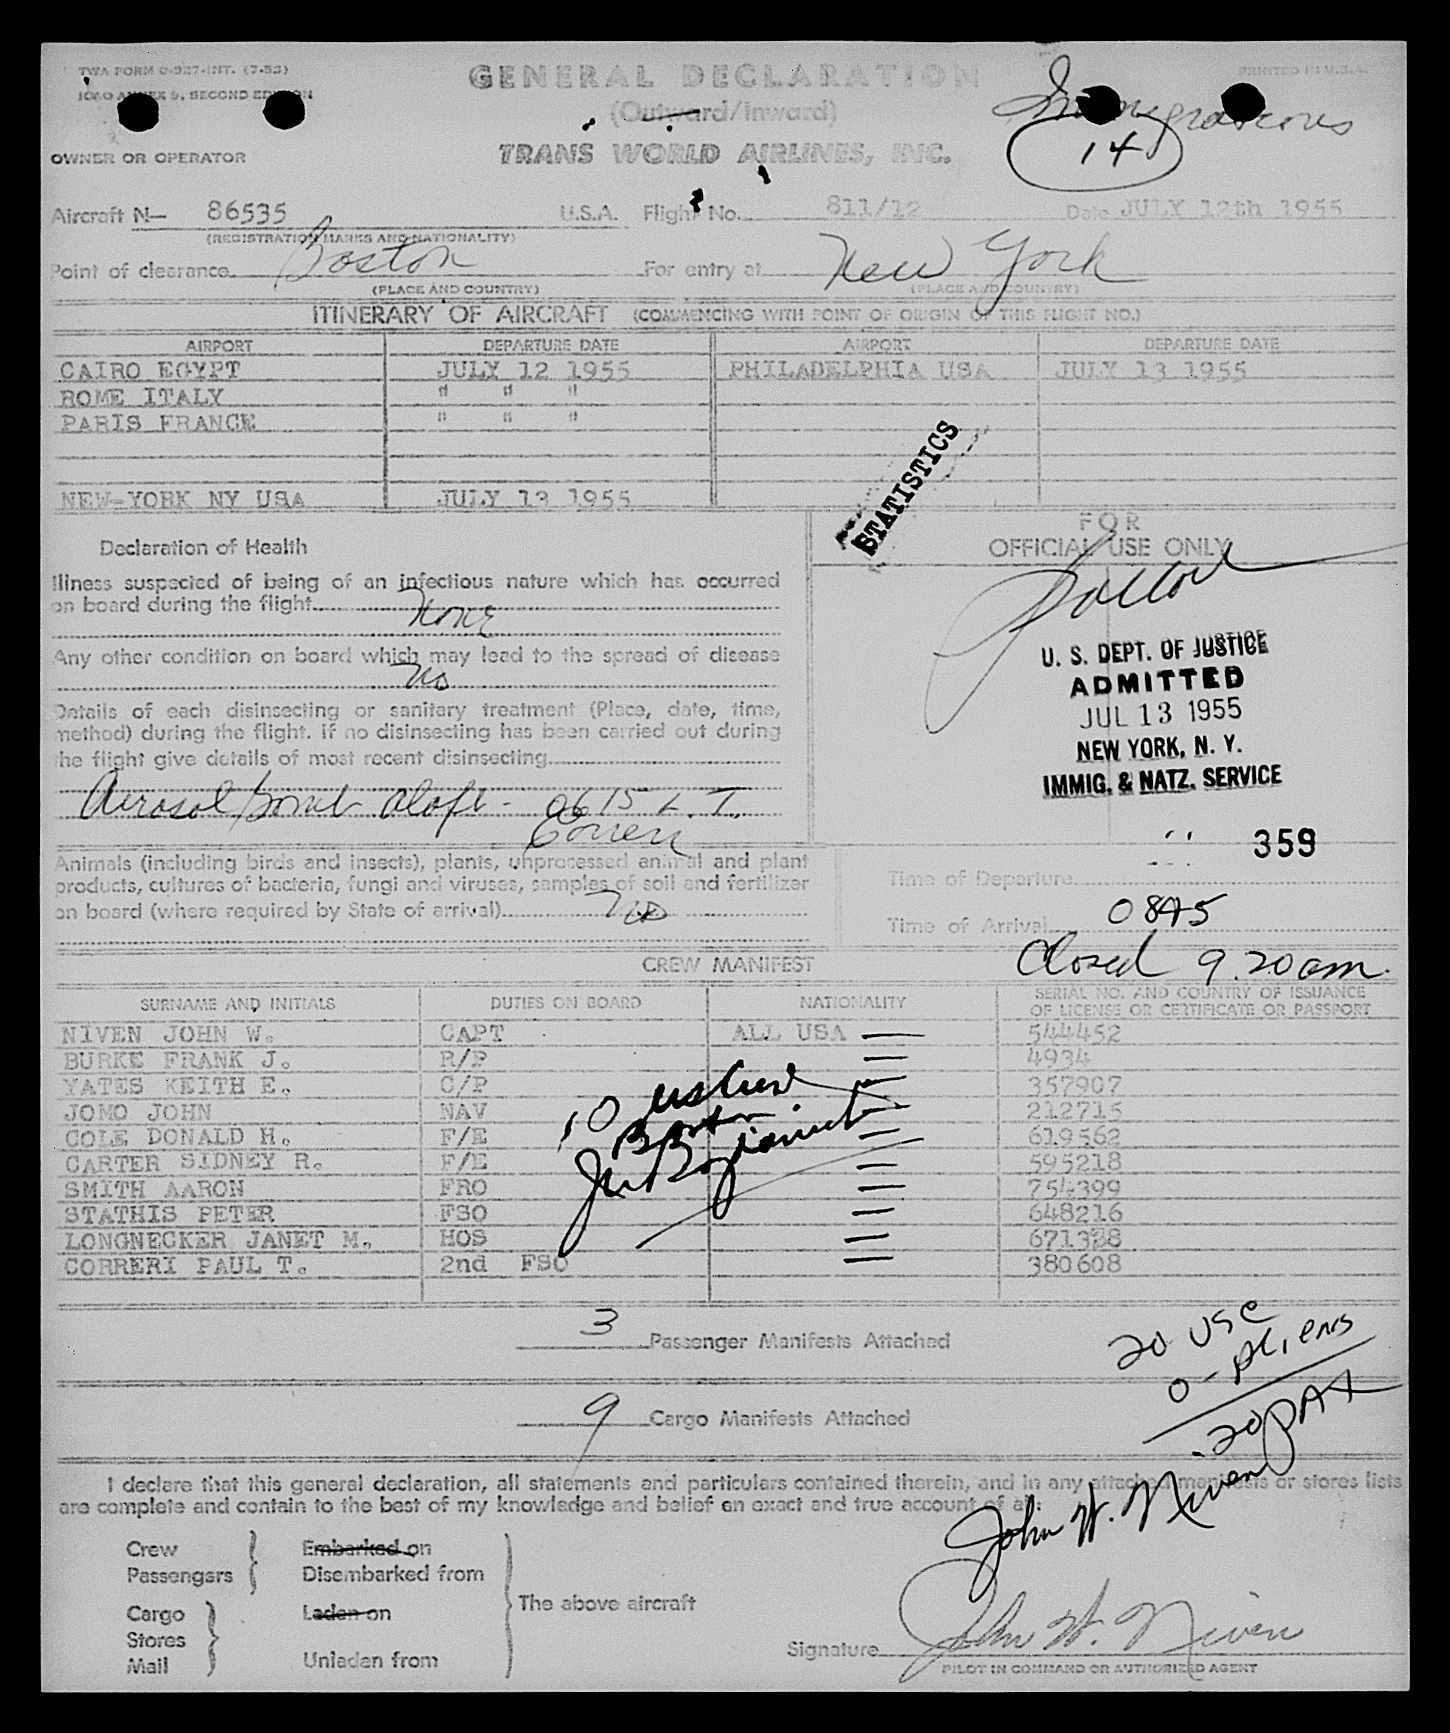 TWA FORM O-927-INT. (7-53)
ICAO ANNEX 9, SECOND EDITION
PRINTED IN U.S.A.
GENERAL DECLARATION
(Outward/Inward)
14
OWNER OR OPERATOR
TRANS WORLD AIRLINES, INC.
Aircraft N— 86535 U.S.A. Flight No. 811/12 Date JULY 12th 1955
(REGISTRATION MARKS AND NATIONALITY)
Point of clearance Boston For entry at New York
(PLACE AND COUNTRY) (PLACE AND COUNTRY)
ITINERARY OF AIRCRAFT (COMMENCING WITH POINT OF ORIGIN OF THIS FLIGHT NO.)
AIRPORT DEPARTURE DATE AIRPORT DEPARTURE DATE
CAIRO EGYPT JULY 12 1955 PHILADELPHIA USA JULY 13 1955
ROME ITALY " " "
PARIS FRANCE " " "
NEW-YORK NY USA JULY 13 1955
STATISTICS
FOR
OFFICIAL USE ONLY
Declaration of Health
Illness suspected of being of an infectious nature which has occurred
on board during the flight None
Any other condition on board which may lead to the spread of disease
No
Details of each disinsecting or sanitary treatment (Place, date, time,
method) during the flight. If no disinsecting has been carried out during
the flight give details of most recent disinsecting
Aerosol bomb aloft - 0615 L.T.
U. S. DEPT. OF JUSTICE
ADMITTED
JUL 13 1955
NEW YORK, N. Y.
IMMIG. & NATZ. SERVICE
359
Animals (including birds and insects), plants, unprocessed animal and plant
products, cultures of bacteria, fungi and viruses, samples of soil and fertilizer
on board (where required by State of arrival) No
Time of Departure
Time of Arrival 0845
Closed 9.20 am.
CREW MANIFEST
SURNAME AND INITIALS DUTIES ON BOARD NATIONALITY SERIAL NO. AND COUNTRY OF ISSUANCE
OF LICENSE OR CERTIFICATE OR PASSPORT
NIVEN JOHN W. CAPT ALL USA 544452
BURKE FRANK J. R/P 4934
YATES KEITH E. C/P 357907
JOMO JOHN NAV 212715
COLE DONALD H. F/E 619562
CARTER SIDNEY R. F/E 595218
SMITH AARON FRO 754399
STATHIS PETER FSO 648216
LONGNECKER JANET M. HOS 671388
CORRERI PAUL T. 2nd FSO 380608
3 Passenger Manifests Attached
20 USC
0 - Aliens
20 PAX
9 Cargo Manifests Attached
I declare that this general declaration, all statements and particulars contained therein, and in any attached manifests or stores lists
are complete and contain to the best of my knowledge and belief an exact and true account of all:
John W. Niven
Crew Embarked on
Passengers Disembarked from
The above aircraft
Cargo Laden on
Stores
Mail Unladen from
Signature John W. Niven
PILOT IN COMMAND OR AUTHORIZED AGENT